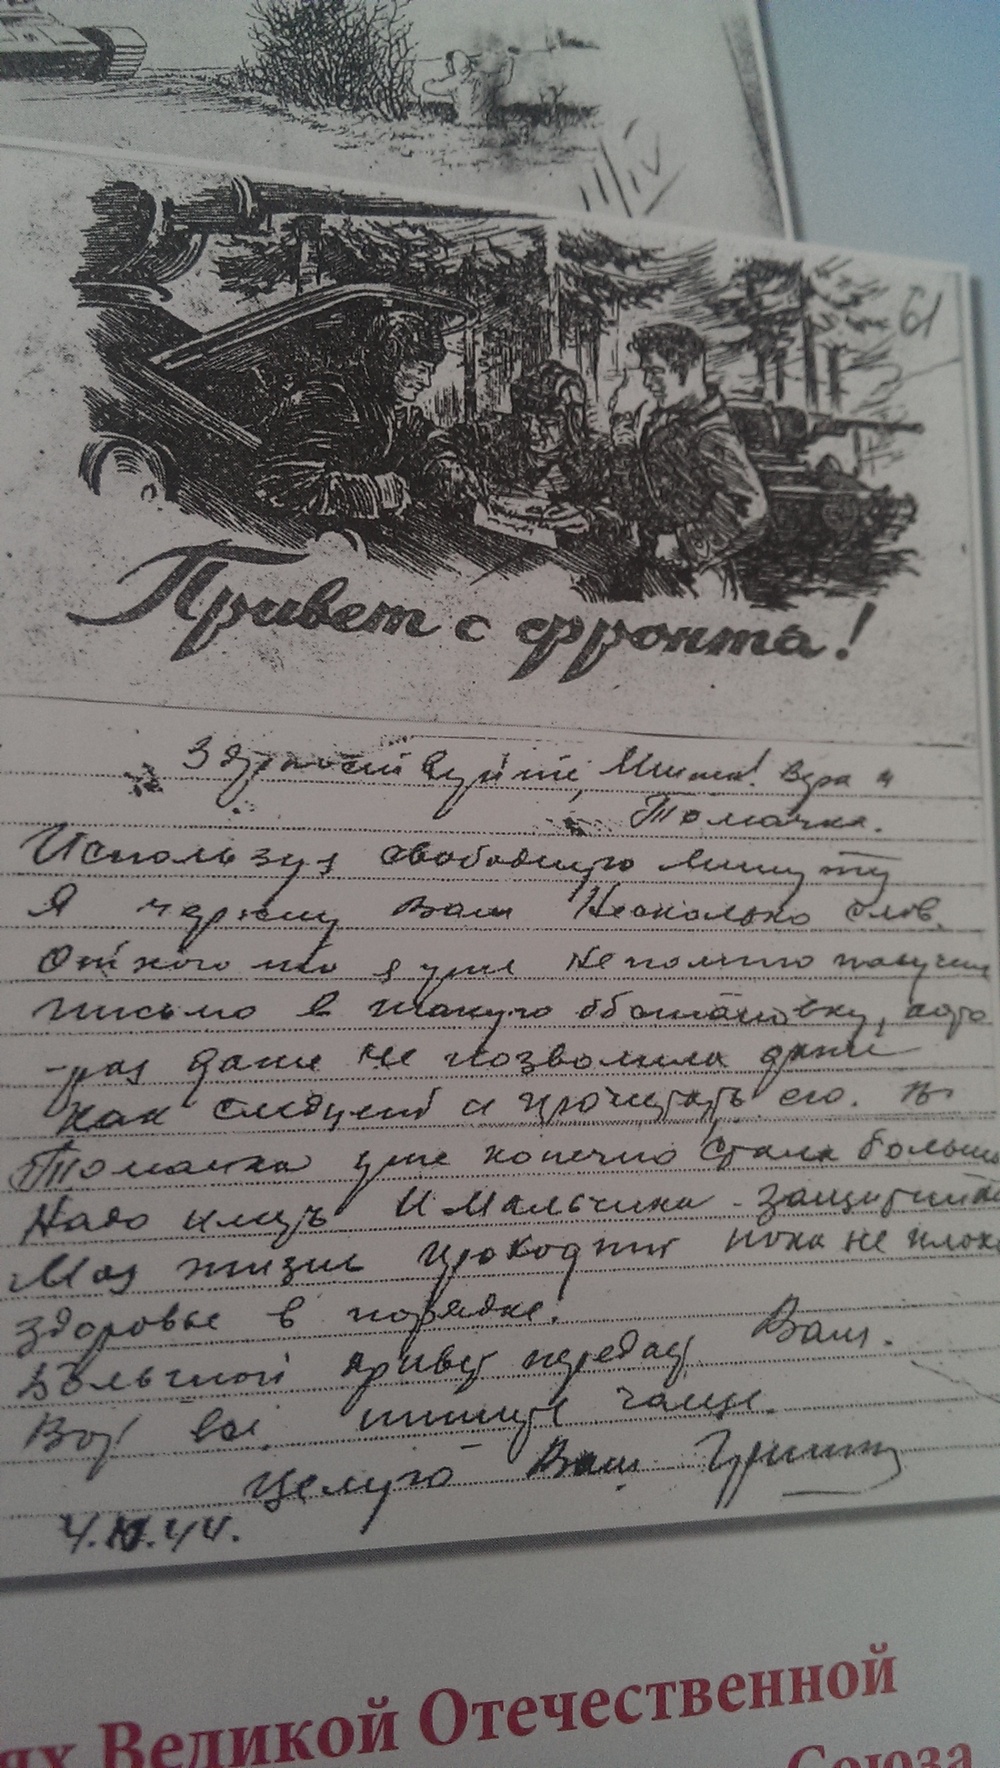 61
Привет с фронта!
Здравствуйте, Миша! Вера и
Томачка.
Используя свободную минуту
Я черкну Вам Несколько слов.
От кого то я уже Не помню получил
письмо в такую обстановку, кото
-рая даже не позволила даже
как следует и прочитать его.
Томачка уже конечно стала большая
Надо иметь И Мальчика - защитника
Моя жизнь проходит пока не плохо
здоровье в порядке.
Большой привет передаю Вам.
Вот все. пишите чаще.
Целую Ваш
4.10.44.
ях Великой Отечественной
Союза